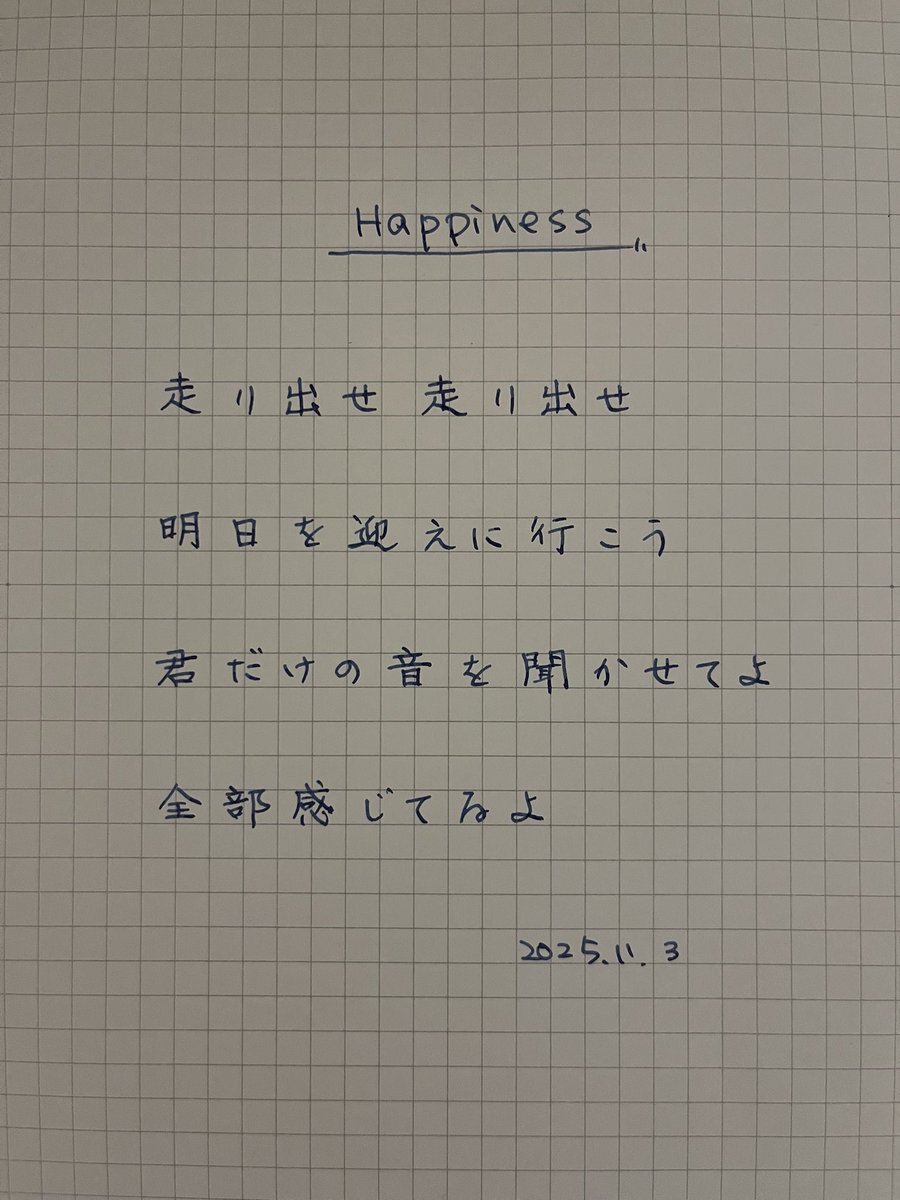 Happiness
走り出せ 走り出せ
明日を迎えに行こう
君だけの音を聞かせてよ
全部感じてるよ
2025.11.3